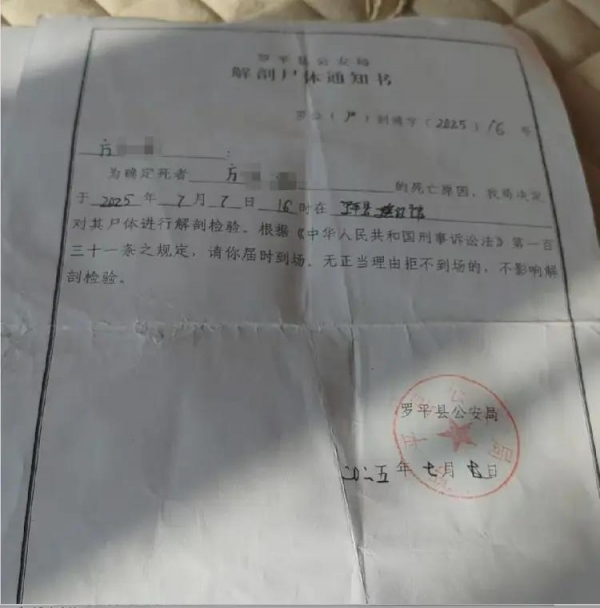 罗平县公安局
解剖尸体通知书
罗公( )剖通字〔2025〕16号
方 :
为确定死者 方 的死亡原因,我局决定
于 2025 年 7 月 7 日 16 时在 罗平县殡仪馆
对其尸体进行解剖检验。根据《中华人民共和国刑事诉讼法》第一百
三十一条之规定,请你届时到场。无正当理由拒不到场的,不影响解
剖检验。
罗平县公安局
二〇二五年七月七日